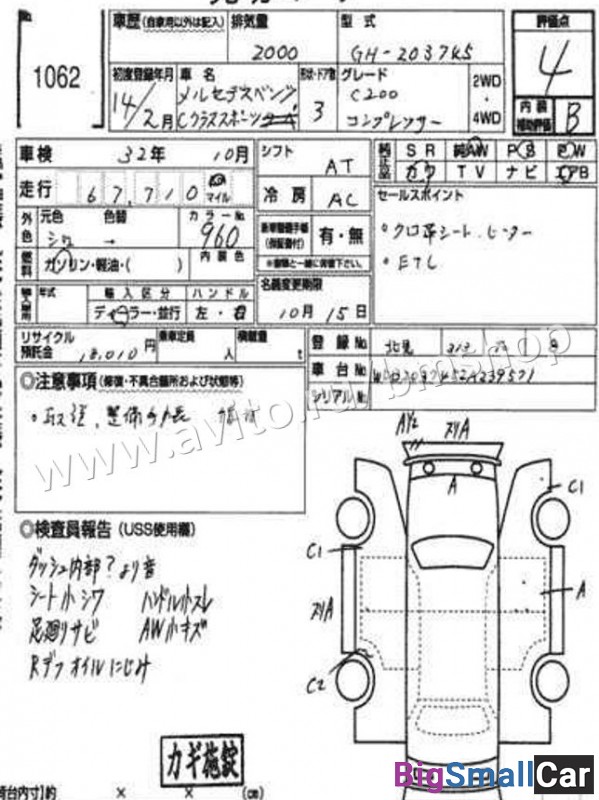 No.
1062
車歴(自家用以外は記入)
排気量
2000
型式
GH-203745
評価点
4
初度登録年月
14/2月
車名
メルセデスベンツ
Cクラススポーツ
形状・ドア数
3
グレード
C200
コンプレッサー
2WD
・
4WD
内装
補助評価
B
車検
32年 10月
シフト
AT
純正品
SR 純AW PS PW
カワ TV ナビ エアB
走行
67,710
マイル
冷房
AC
セールスポイント
・クロ革シート.ヒーター
・ETC
外色
元色 色替 カラーNo.
シロ → 960
新車整備手帳
(保証書付)
有・無
燃料
ガソリン・軽油・( )
内装色
名義変更期限
10月 15日
輸入車用
年式
輸入区分
ハンドル
ディーラー・並行
左・右
リサイクル
預託金
18,010円
乗車定員
人
積載量
t
登録No.
北見
車台No.
シリアルNo.
◎注意事項(修復・不具合箇所および状態等)
◎検査員報告(USS使用欄)
ダッシュ内部?より音
シート小シワ ハンドル小スレ
足廻りサビ AW小キズ
Rデフオイルにじみ
カギ施錠
AY2
スリA
A
C1
C1
A
スリA
C2
荷台内寸)約 × × (cm)
www.avito.ru/bmshop
BigSmallCar